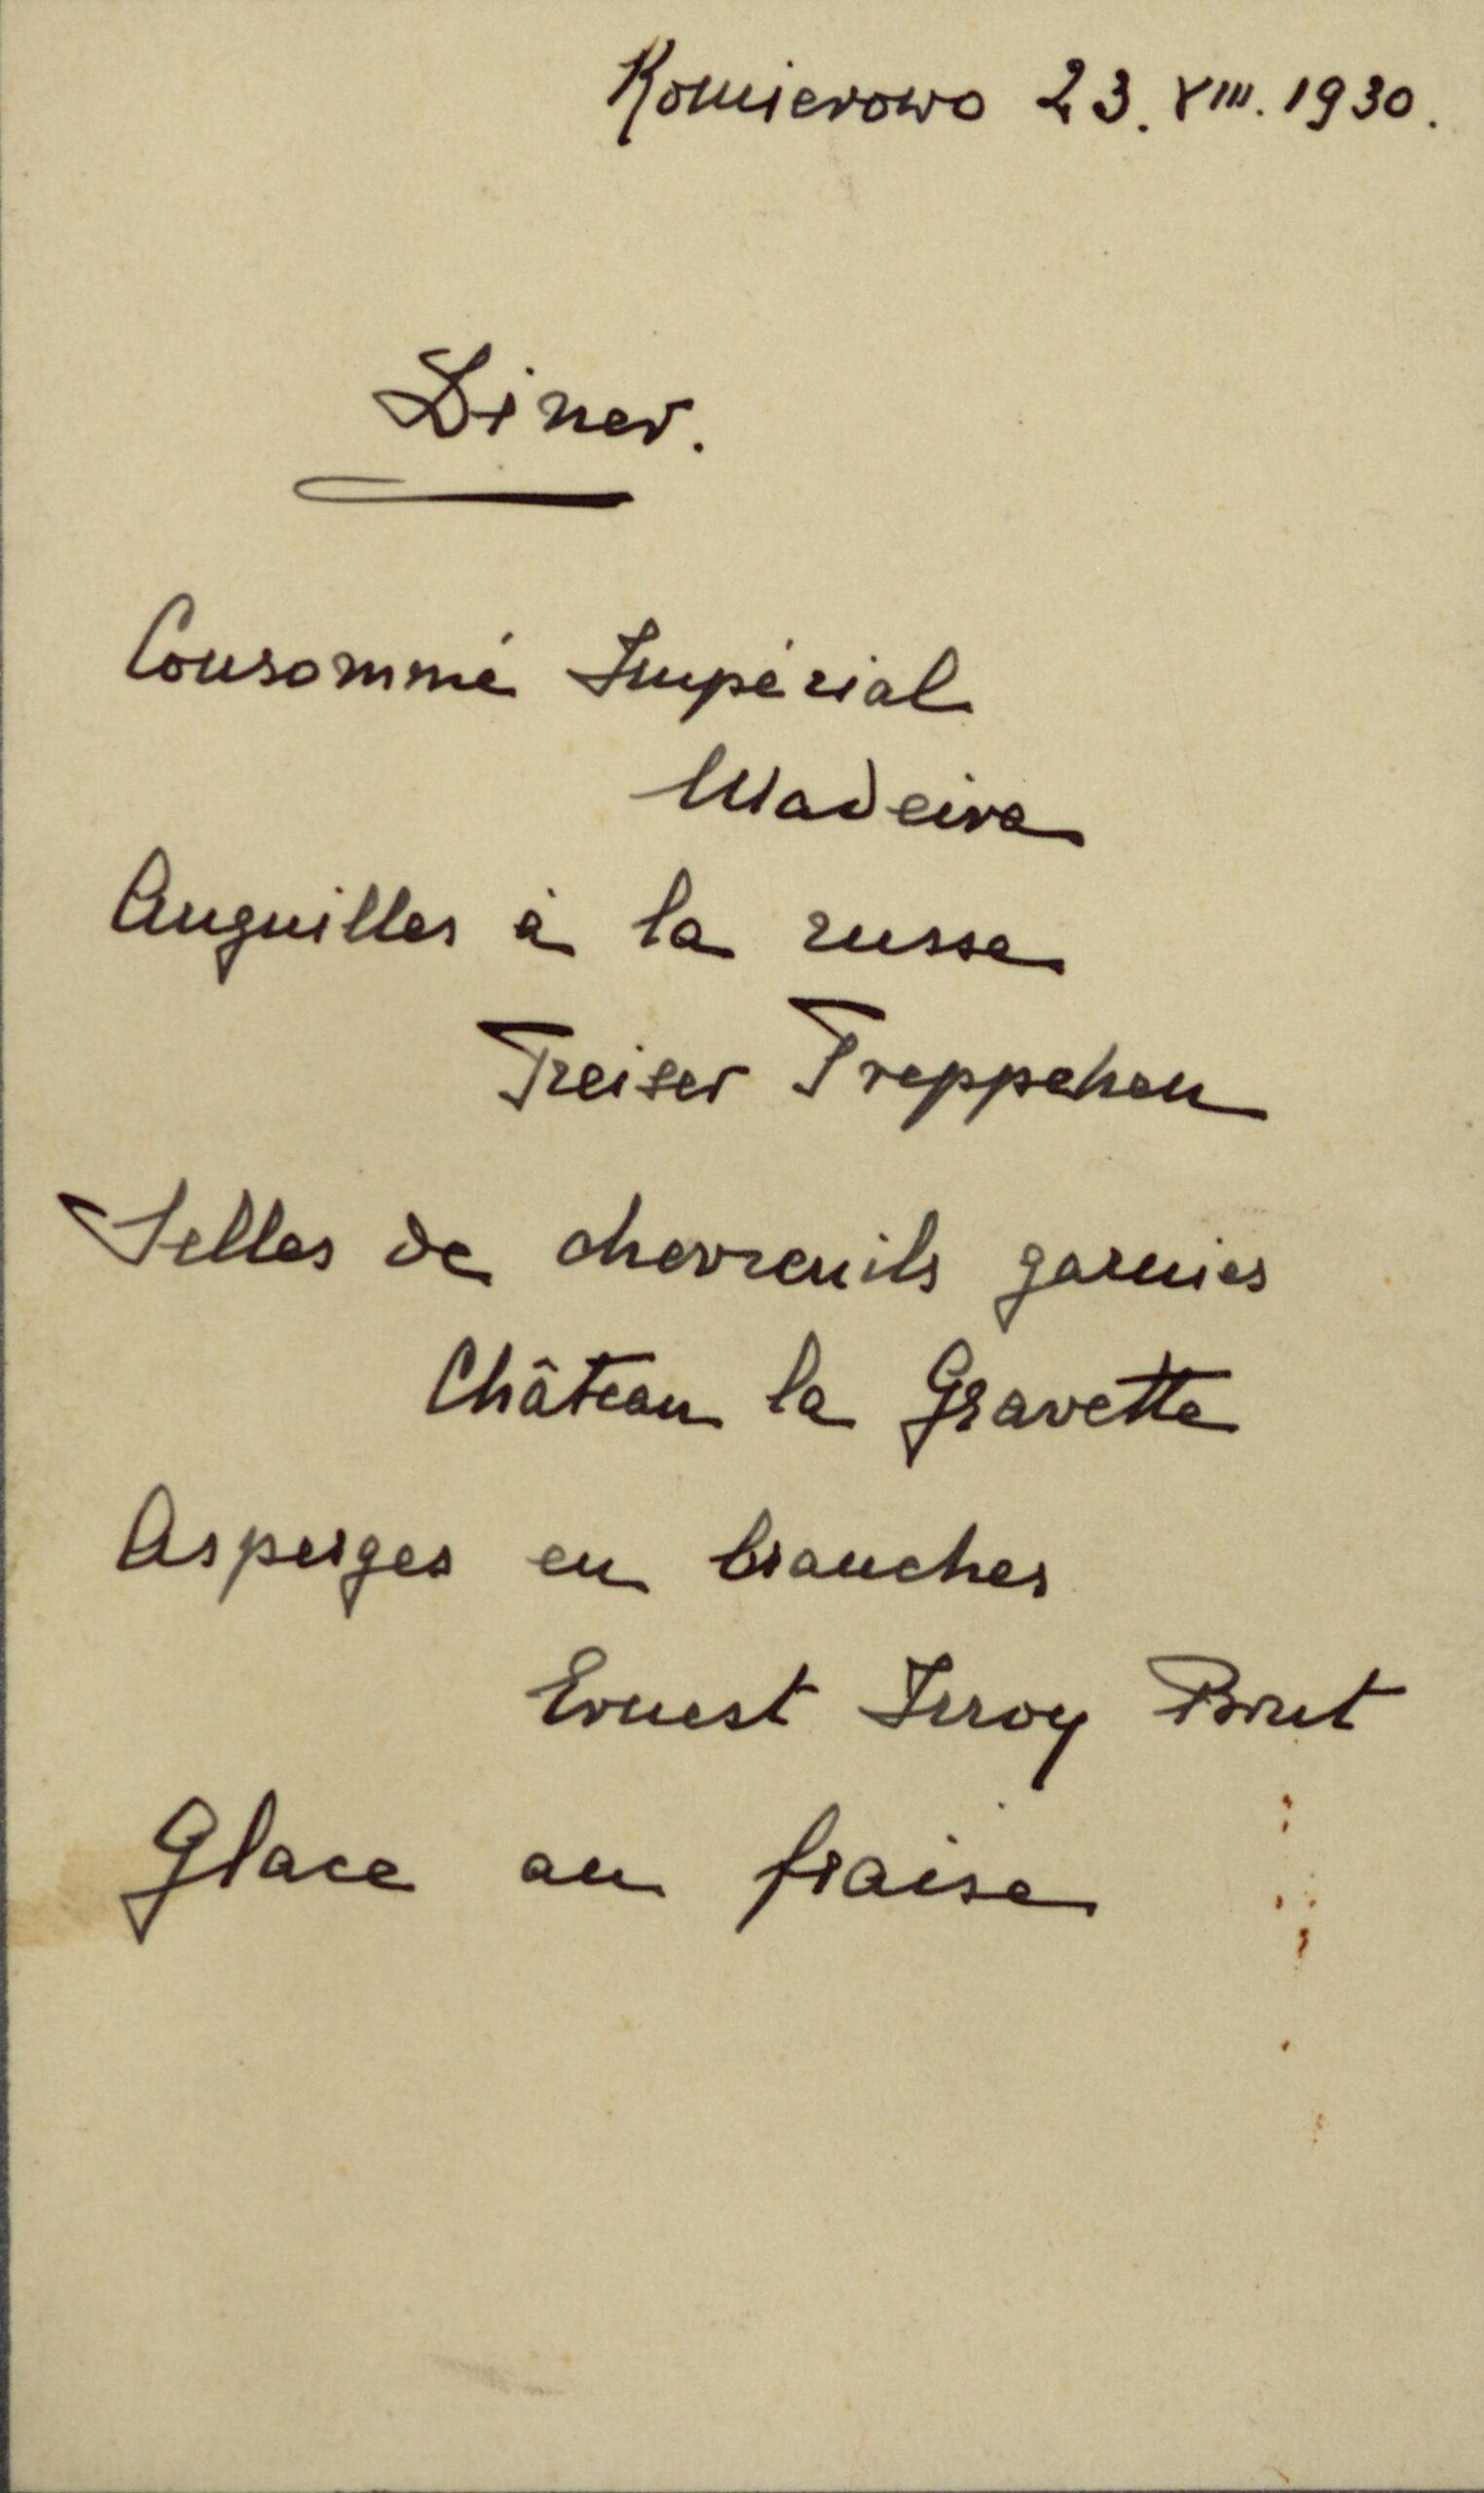 Komierowo 23. VIII. 1930.
Diner.
Consommé Impérial
Madeira
Anguilles à la russe
Treiser Treppchen
Selles de chevreuils garnies
Château la Gravette
Asperges en branches
Ernest Irroy Brut
Glace au fraise